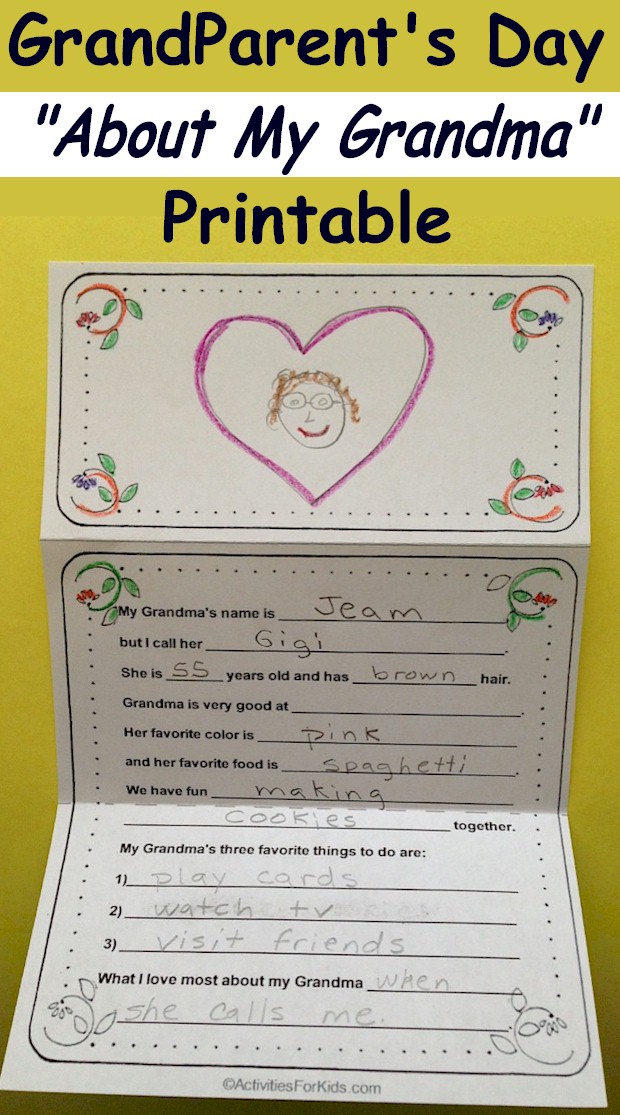 GrandParent's Day
"About My Grandma"
Printable
My Grandma's name is Jeam
but I call her Gigi.
She is 55 years old and has brown hair.
Grandma is very good at ____.
Her favorite color is pink
and her favorite food is spaghetti.
We have fun making
cookies together.
My Grandma's three favorite things to do are:
1) play cards
2) watch tv
3) visit friends
What I love most about my Grandma when
she calls me.
©ActivitiesForKids.com